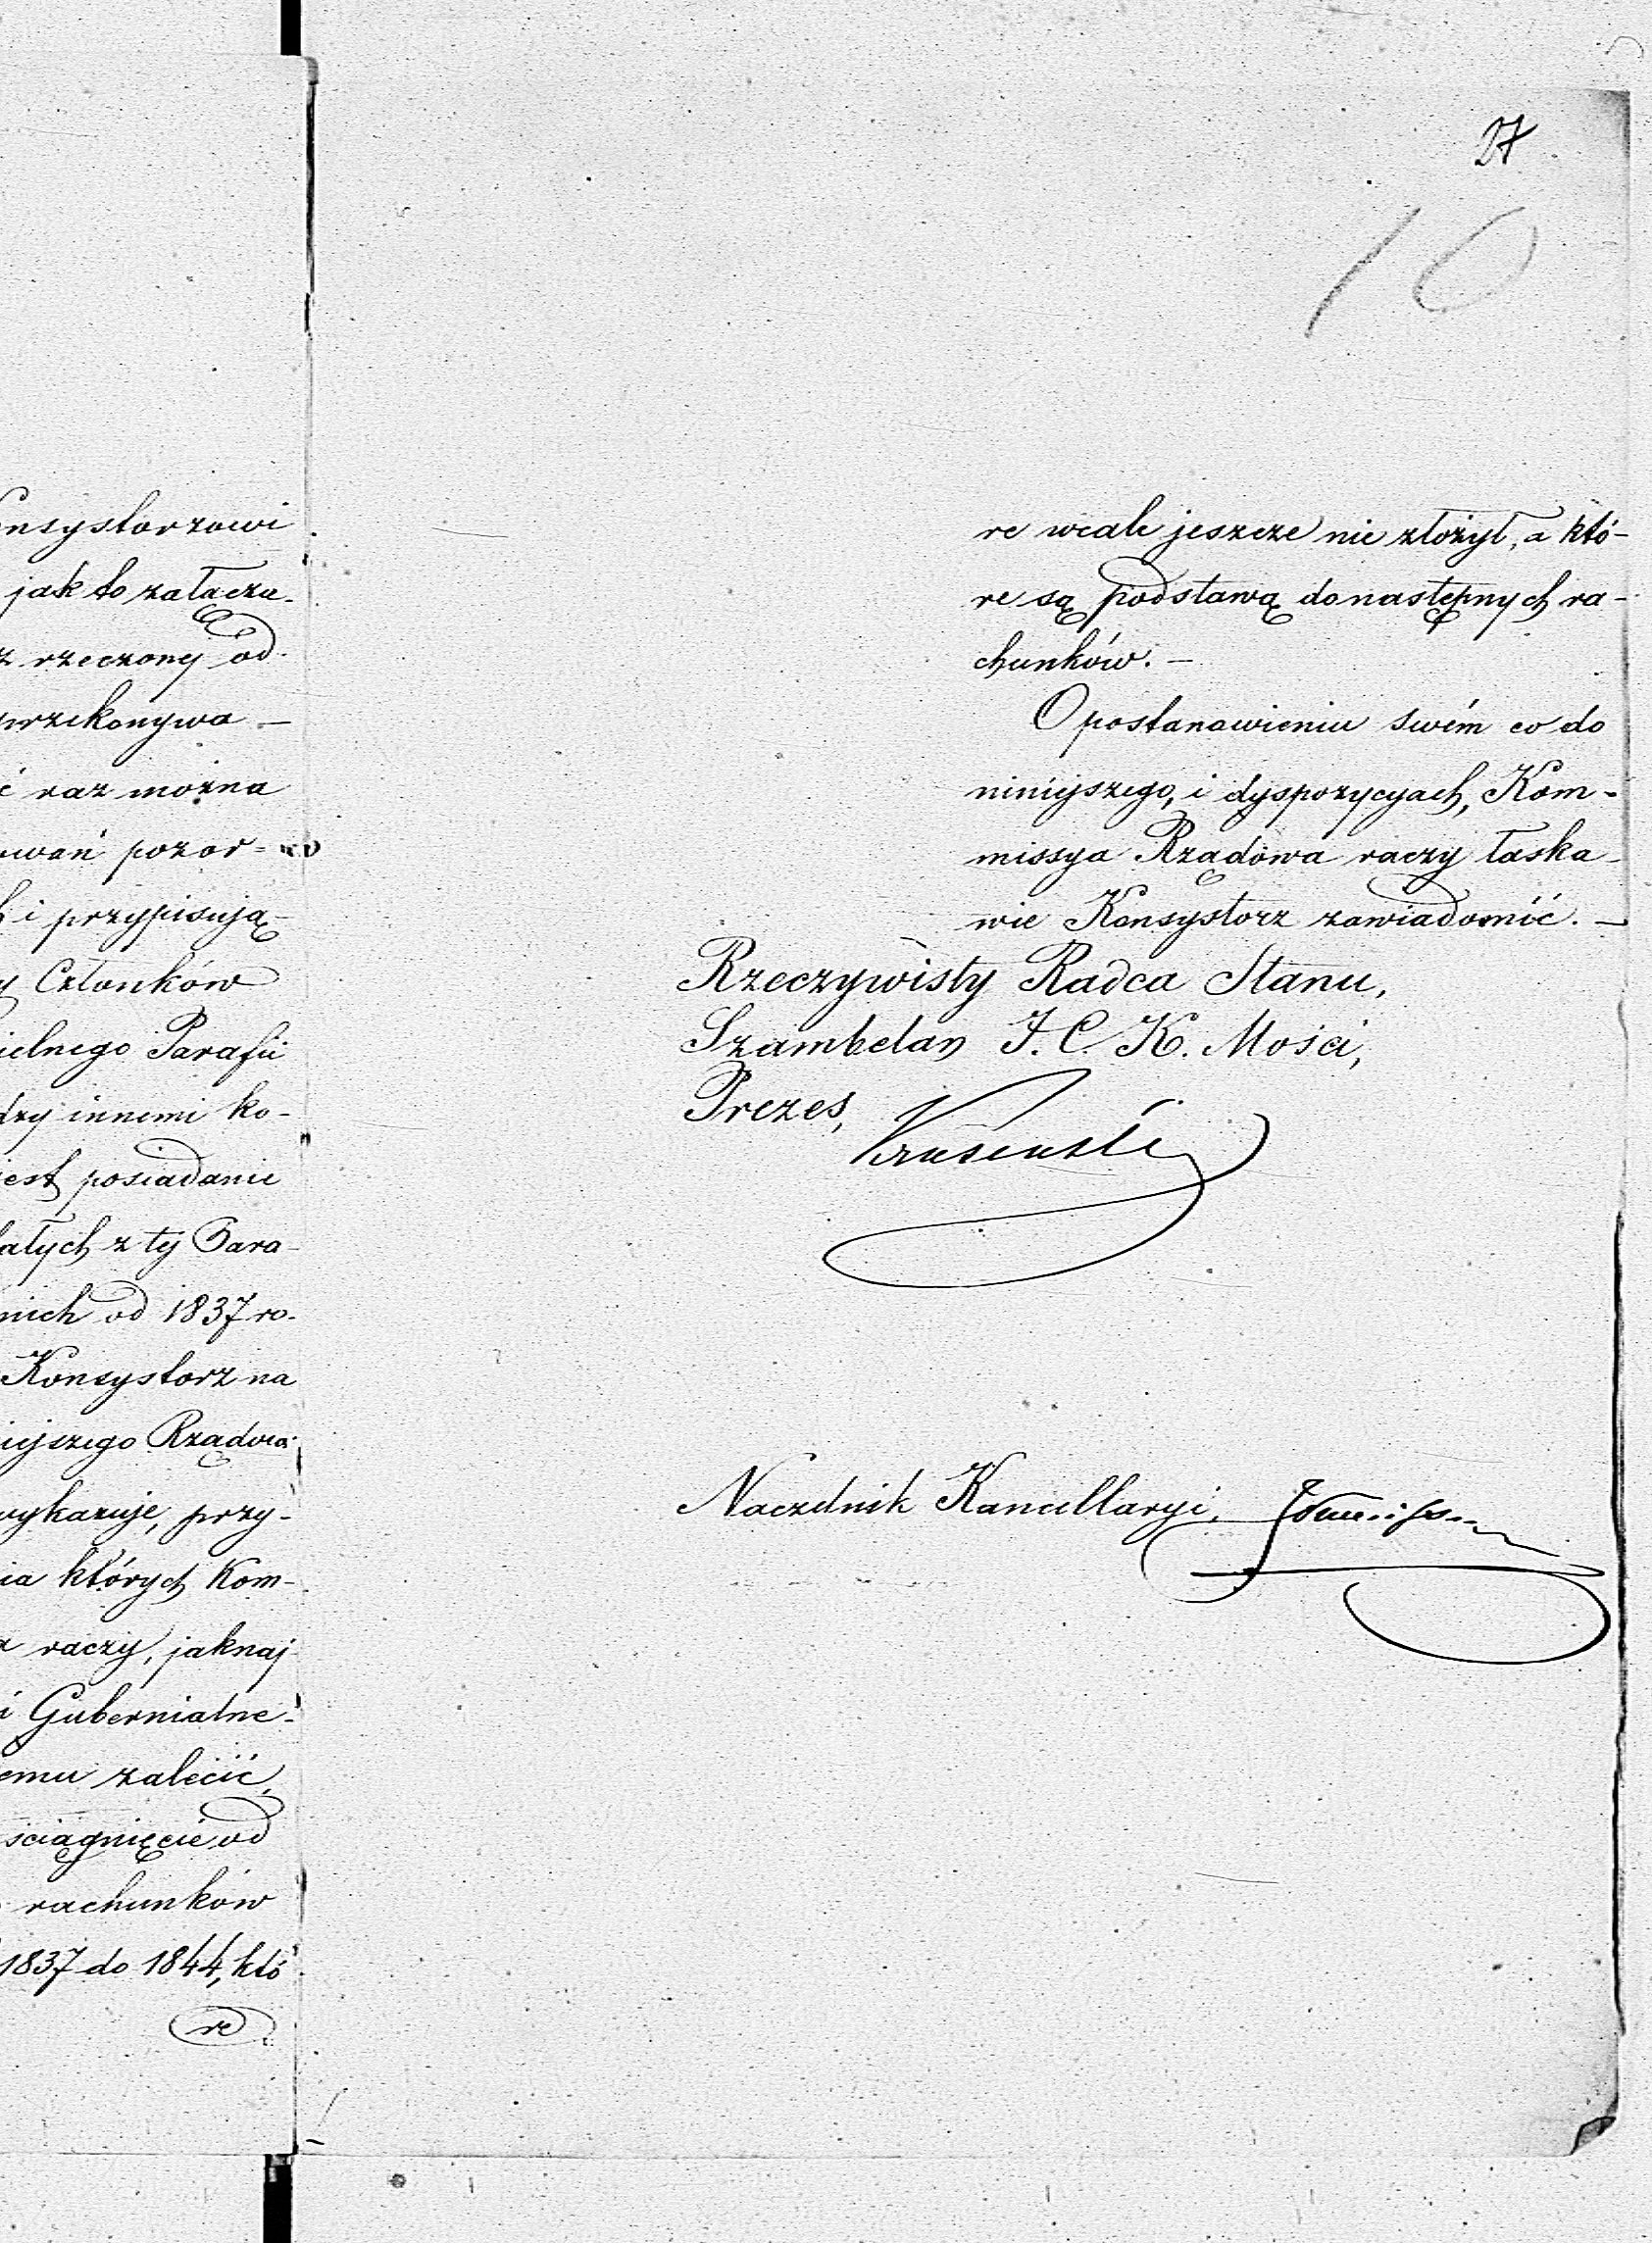 nsystorzowi
jak to załącza-
rzeczony od-
przekonywa —
raz można
pozor=
i przypisują-
Członków
Parafii
innemi ko-
jest posiadanie
z tej Para-
nich od 1837 ro-
Konsystorz na
Rządowa
wykazuje, przy-
których Kom-
raczy, jaknaj-
Gubernialne-
emu zalecić,
ściągnięcie od
rachunków
1837 do 1844, któ-
re
27
10
re wcale jeszcze nie złożył, a któ-
re są podstawą do następnych ra-
chunków. —
O postanowieniu swém co do
niniejszego, i dyspozycyach, Kom-
missya Rządowa raczy łaska-
wie Konsystorz zawiadomić. —
Rzeczywisty Radca Stanu,
Szambelan J. C. K. Mości,
Prezes,
Naczelnik Kancellaryi,